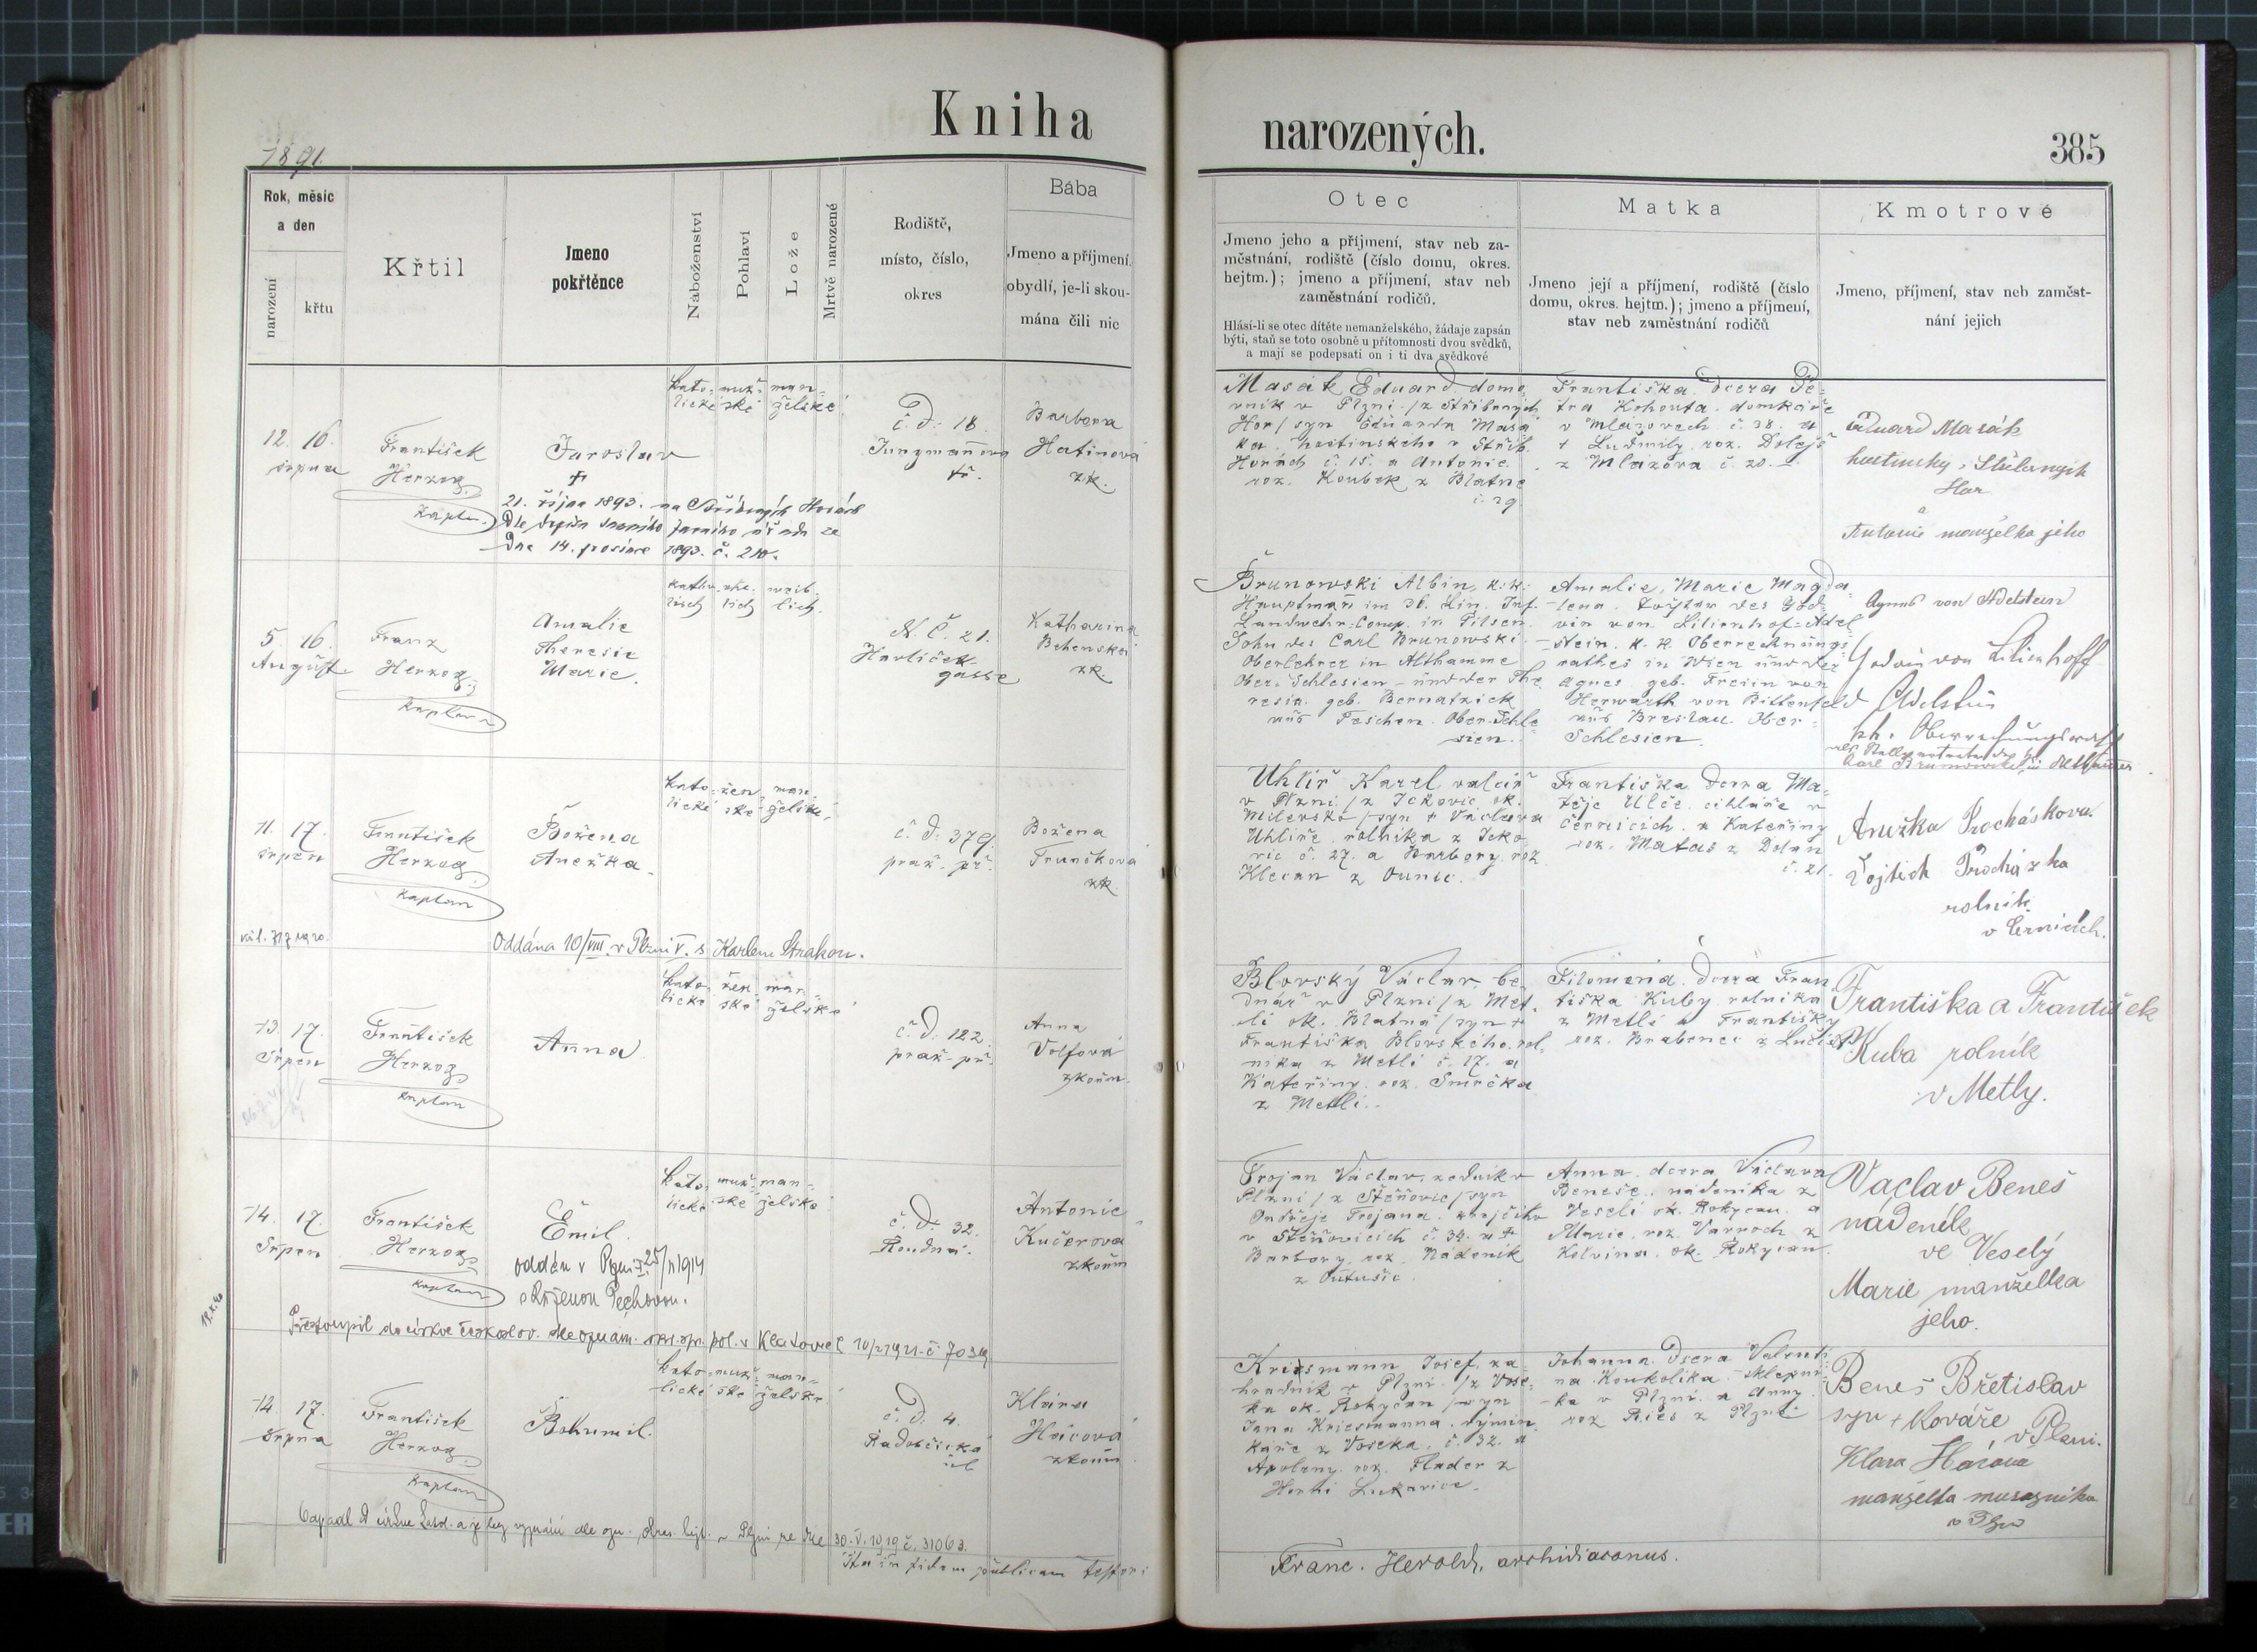 Kniha
narozených.
385
1891.
Rok, měsíc
a den
narození
křtu
Křtil
Jmeno
pokřtěnce
Náboženství
Pohlaví
Lože
Mrtvě narozené
Rodiště,
místo, číslo,
okres
Bába
Jmeno a příjmení,
obydlí, je-li skou-
mána čili nic
Otec
Jmeno jeho a příjmení, stav neb za-
městnání, rodiště (číslo domu, okres.
hejtm.); jmeno a příjmení, stav neb
zaměstnání rodičů.
Hlásí-li se otec dítěte nemanželského, žádaje zapsán
býti, staň se toto osobně u přítomnosti dvou svědků,
a mají se podepsati on i ti dva svědkové
Matka
Jmeno její a příjmení, rodiště (číslo
domu, okres. hejtm.); jmeno a příjmení,
stav neb zaměstnání rodičů
Kmotrové
Jmeno, příjmení, stav neb zaměst-
nání jejich
12. 16.
srpna
František
Herzog
kaplan
Jaroslav
†
21. října 1893. na Stříbrných Horách
dne 14. prosince 1893. č. 210.
kato- muž- man-
lické ské želské
č. d. 18
Jungmanova
tř.
Barbora
Hatinova
zk.
Masák Eduard domo-
vník v Plzni /z Stříbrných
Hor/ syn Eduarda Masá
ka, hostinského v Stříb.
Horách č. 15. a Antonie
roz. Koubek z Blatné
č. 29
Františka dcera Pe-
tra Kohouta domkáře
v Mlázovech č. 38. a
† Ludmily roz. Dolejš
z Mlázova č. 20.
Eduard Masák
hostinsky, Stříbrnych
Hor
a
Antonie manželka jeho
5. 16.
August
Franz
Herzog
Kaplan
Amalie
Theresie
Marie.
katho- ehe- weib-
lisch lich lich.
N. C. 21.
Havlíček-
gasse
Katharina
zk.
Brunowski Albin, k. k.
Hauptmañ im 36. Lin. Inf.
Landwehr-Comp. in Pilsen.
Sohn des Carl Brunowski
Oberlehrer in Althamme
Ober-Schlesien - und der The
resia geb. Bernatzick
aus Teschen. Ober-Schle
sien.
Amalie, Marie Magda-
lena. Tochter des God-
win von Lilienhof-Adel
stein. k. k. Oberrechnungs-
rathes in Wien und der
Agnes geb. Freiin von
Herwarth von Bittenfeld
aus Breslau. Ober-
Schlesien.
Agnes von Adelstein
Godwin von Lilienhoff
Adelstein
11. 17.
srpen
František
Herzog
kaplan
Božena
Anežka.
kato- žen- man-
lické ské želské
č. d. 379.
praž. př.
Božena
Trunečkova
zk.
Oddána 10/VIII. v Plzni V. s Karlem Strakou.
Uhlíř Karel valcíř
v Plzni /z Jckovic ok.
Milevsko/ syn † Václava
Uhlíře, rolníka z Jcko
vic č. 27. a Barbory roz
Klecan z Ounic.
Františka dcera Ma-
těje Ulče cihláře v
Černicích a Kateřiny
roz. Matas z Dolan
č. 21.
Anežka Procháskova.
Vojtěch Procházka
rolník
v Černicích.
13. 17.
Srpen
František
Herzog
kaplan
Anna
kato- žen- man-
lické ské želské
č. d. 122.
praž. př.
Anna
Volfová
zkoum.
Blovský Václav, be-
dnář v Plzni /z Met-
lí ok. Blatná/ syn †
Františka Blovského, rol-
níka z Metlí č. 17. a
Kateřiny roz. Smrčka
z Metlí.
Filomena dcera Fran
tiška Kuby rolníka
z Metlí a Františky
roz. Brabenec z
Františka a František
Kuba rolník
v Metly.
14. 17.
Srpen
František
Herzog
kaplan
Emil.
oddán v Plzni 25/II 1914
s Růženou Pechovou.
kato- muž- man-
lické ské želské
č. d. 32.
Roudná.
Antonie
Kučerová
zkoum
Přestoupil do církve českoslov. dle oznám. okr. spr. pol. v Klatovech
Trojan Václav, zedník v
Plzni /z Stěňovic/ syn
Ondřeje Trojana krejčího
v Stěňovicích č. 34. a †
Barbory roz. Nádeník
z Outušic.
Anna dcera Václava
Beneše, nádeníka z
Veselí ok. Rokycan a
Marie roz. Varroch z
Kolvína. ok. Rokycan.
Vaclav Beneš
nádeník
ve Veselý
Marie manželka
jeho.
14. 17.
Srpna
František
Herzog
kaplan
Bohumil.
kato- muž- man-
lické ské želské
č. d. 4.
Radobčická
ul
Klára
Hácová
zkoum
30. V. 1919 č. 31063.
Kriesmann Josef, za-
hradník v Plzni /z Vose-
ka ok. Rokycan/ syn
Jana Kriesmanna
káře z Voseka, č. 32. a
Apoleny roz. Flader z
Horní Lukavice.
Johanna. Dcera Valenti-
na Koukolíka sklepní-
ka v Plzni a Anny
roz Ries z Plzně
Beneš Břetislav
syn † kováře v Plzni.
Klara Hácova
manželka
v Plzni
Ita in fidem publicam testor:
Franc. Herold, archidiaconus.